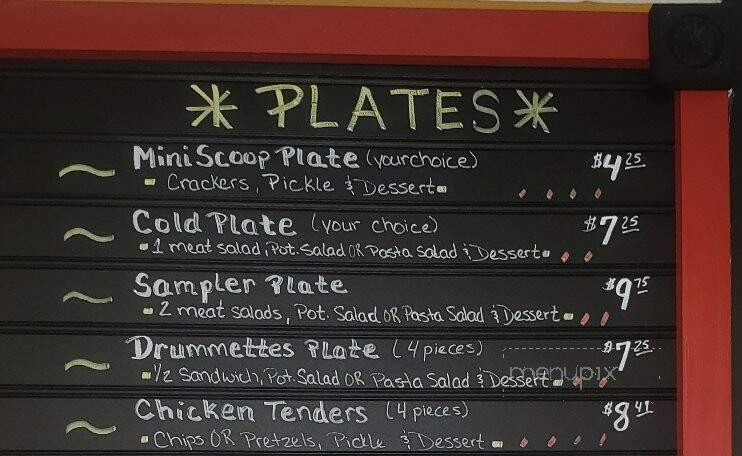 * PLATES *
~ Mini Scoop Plate (your choice) $4 25
- Crackers, Pickle & Dessert
~ Cold Plate (your choice) $7 25
- 1 meat salad, Pot. Salad OR Pasta Salad & Dessert
~ Sampler Plate $9 75
- 2 meat salads, Pot. Salad OR Pasta Salad & Dessert
~ Drummettes Plate (4 pieces) $7 25
- 1/2 Sandwich, Pot. Salad OR Pasta Salad & Dessert
menupix
~ Chicken Tenders (4 pieces) $8 49
- Chips OR Pretzels, Pickle & Dessert